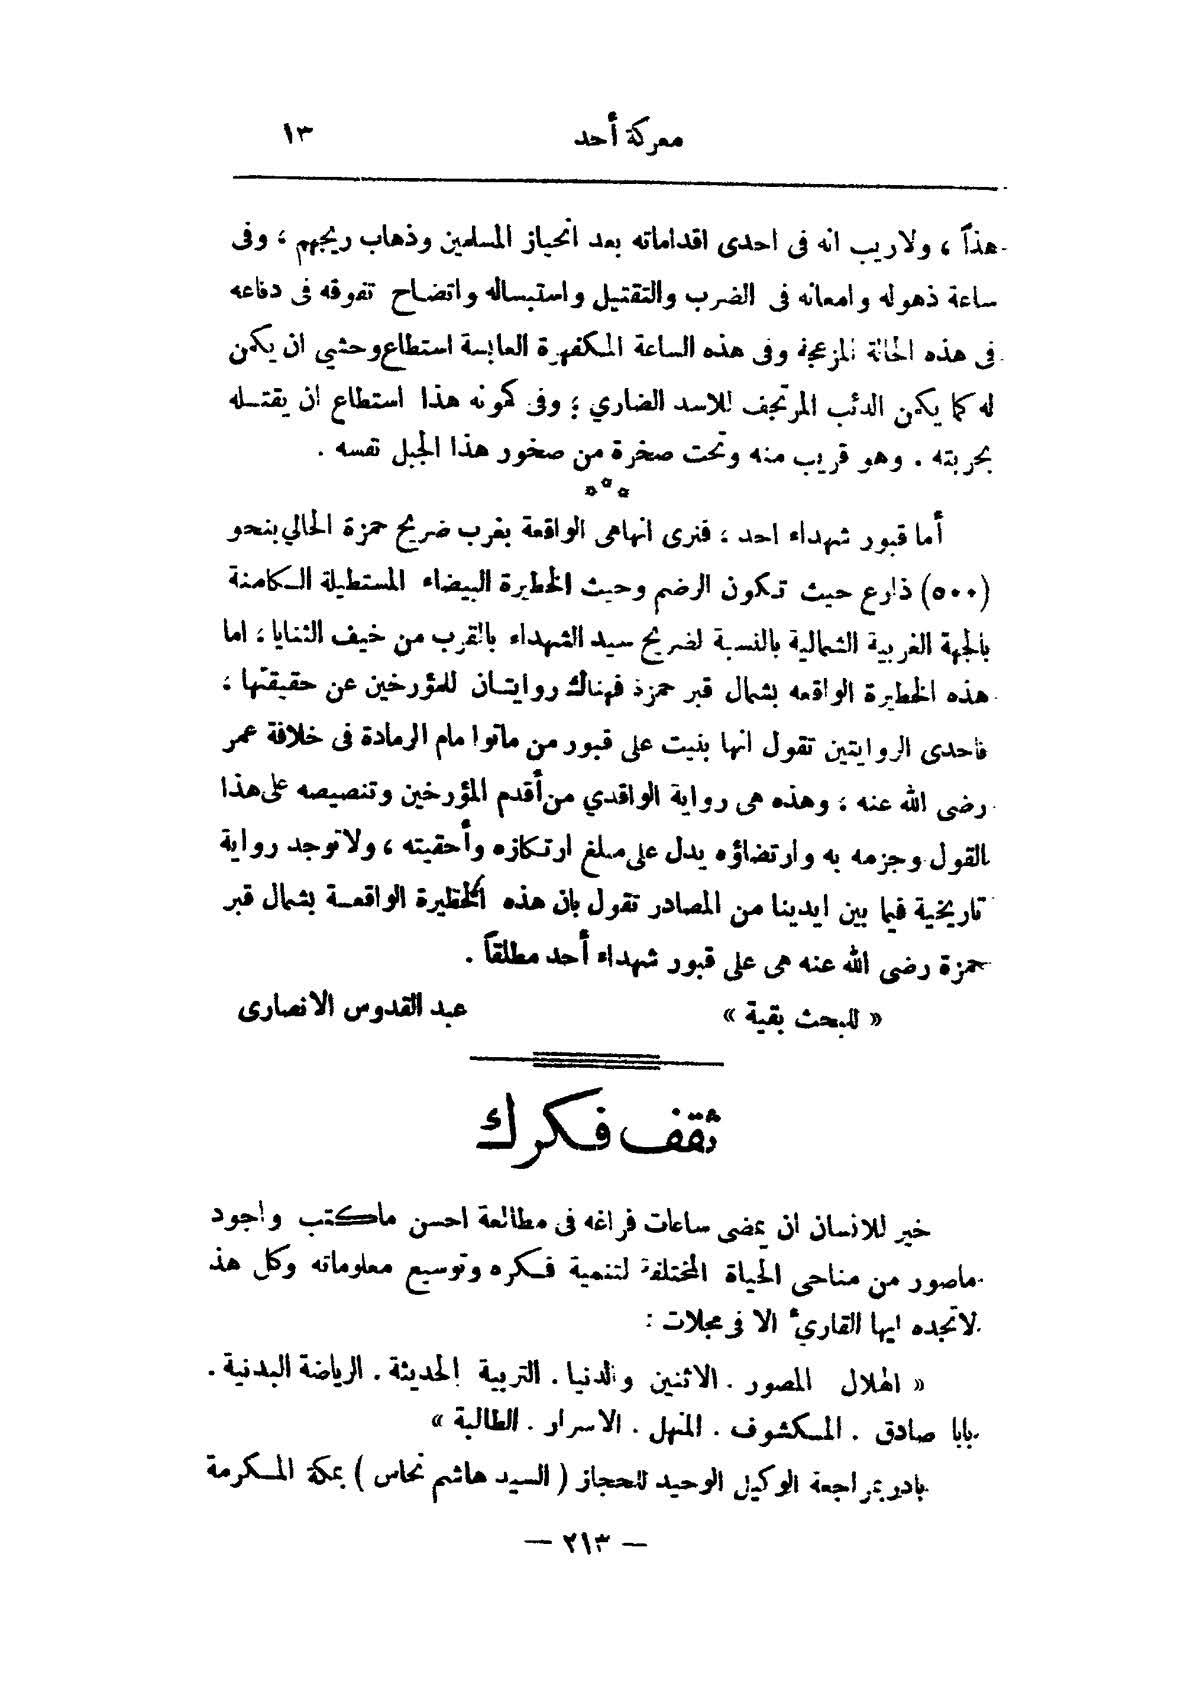 معركة أحد ١٣
هذاً ، ولاريب انه فى احدى اقداماته بعد انحياز المسلمين وذهاب ريحهم ؛ وفى
ساعة ذهوله وامعانه فى الضرب والتقتيل واستبساله واتضاح تفوقه فى دفاعه
فى هذه الحالة المزعجة وفى هذه الساعة المكفهرة العابسة استطاع وحشي ان يكمن
له كما يكمن الذئب المرتجف للاسد الضاري ؛ وفى كمونه هذا استطاع ان يقتله
بحربته . وهو قريب منه وتحت صخرة من صخور هذا الجبل نفسه .
***
أما قبور شهداء احد ؛ فنرى انهاهى الواقعة بغرب ضريح حمزة الحالي بنحو
(٥٠٠) ذارع حيث تكون الرضم وحيث الخطيرة البيضاء المستطيلة الكامنة
بالجهة الغربية الشمالية بالنسبة لضريح سيد الشهداء بالقرب من خيف الثنايا ؛ اما
هذه الخطيرة الواقعه بشمال قبر حمزة فهناك روايتان للمؤرخين عن حقيقتها ؛
فاحدى الروايتين تقول انها بنيت على قبور من ماتوا مام الرمادة فى خلافة عمر
رضى الله عنه ؛ وهذه هى رواية الواقدي من أقدم المؤرخين وتنصيصه على هذا
القول وجزمه به وارتضاؤه يدل على مبلغ ارتكازه وأحقيته ، ولاتوجد رواية
تاريخية فيما بين ايدينا من المصادر تقول بان هذه الحظيرة الواقعة بشمال قبر
حمزة رضى الله عنه هى على قبور شهداء أحد مطلقاً .
« للبحث بقية » عبد القدوس الانصارى
ثقف فكرك
خير للانسان ان يمضى ساعات فراغه فى مطالعة احسن ماكتب واجود
ماصور من مناحى الحياة المختلفة لتنمية فكره وتوسيع معلوماته وكل هذ
لاتجده ايها القاريء الا فى مجلات :
« الهلال المصور . الاثنين والدنيا . التربية الحديثة . الرياضة البدنية .
بابا صادق . المكشوف . المنهل . الاسرار . الطالبة »
بادر بمراجعة الوكيل الوحيد للحجاز ( السيد هاشم نحاس ) بمكة المكرمة
— ٢١٣ —